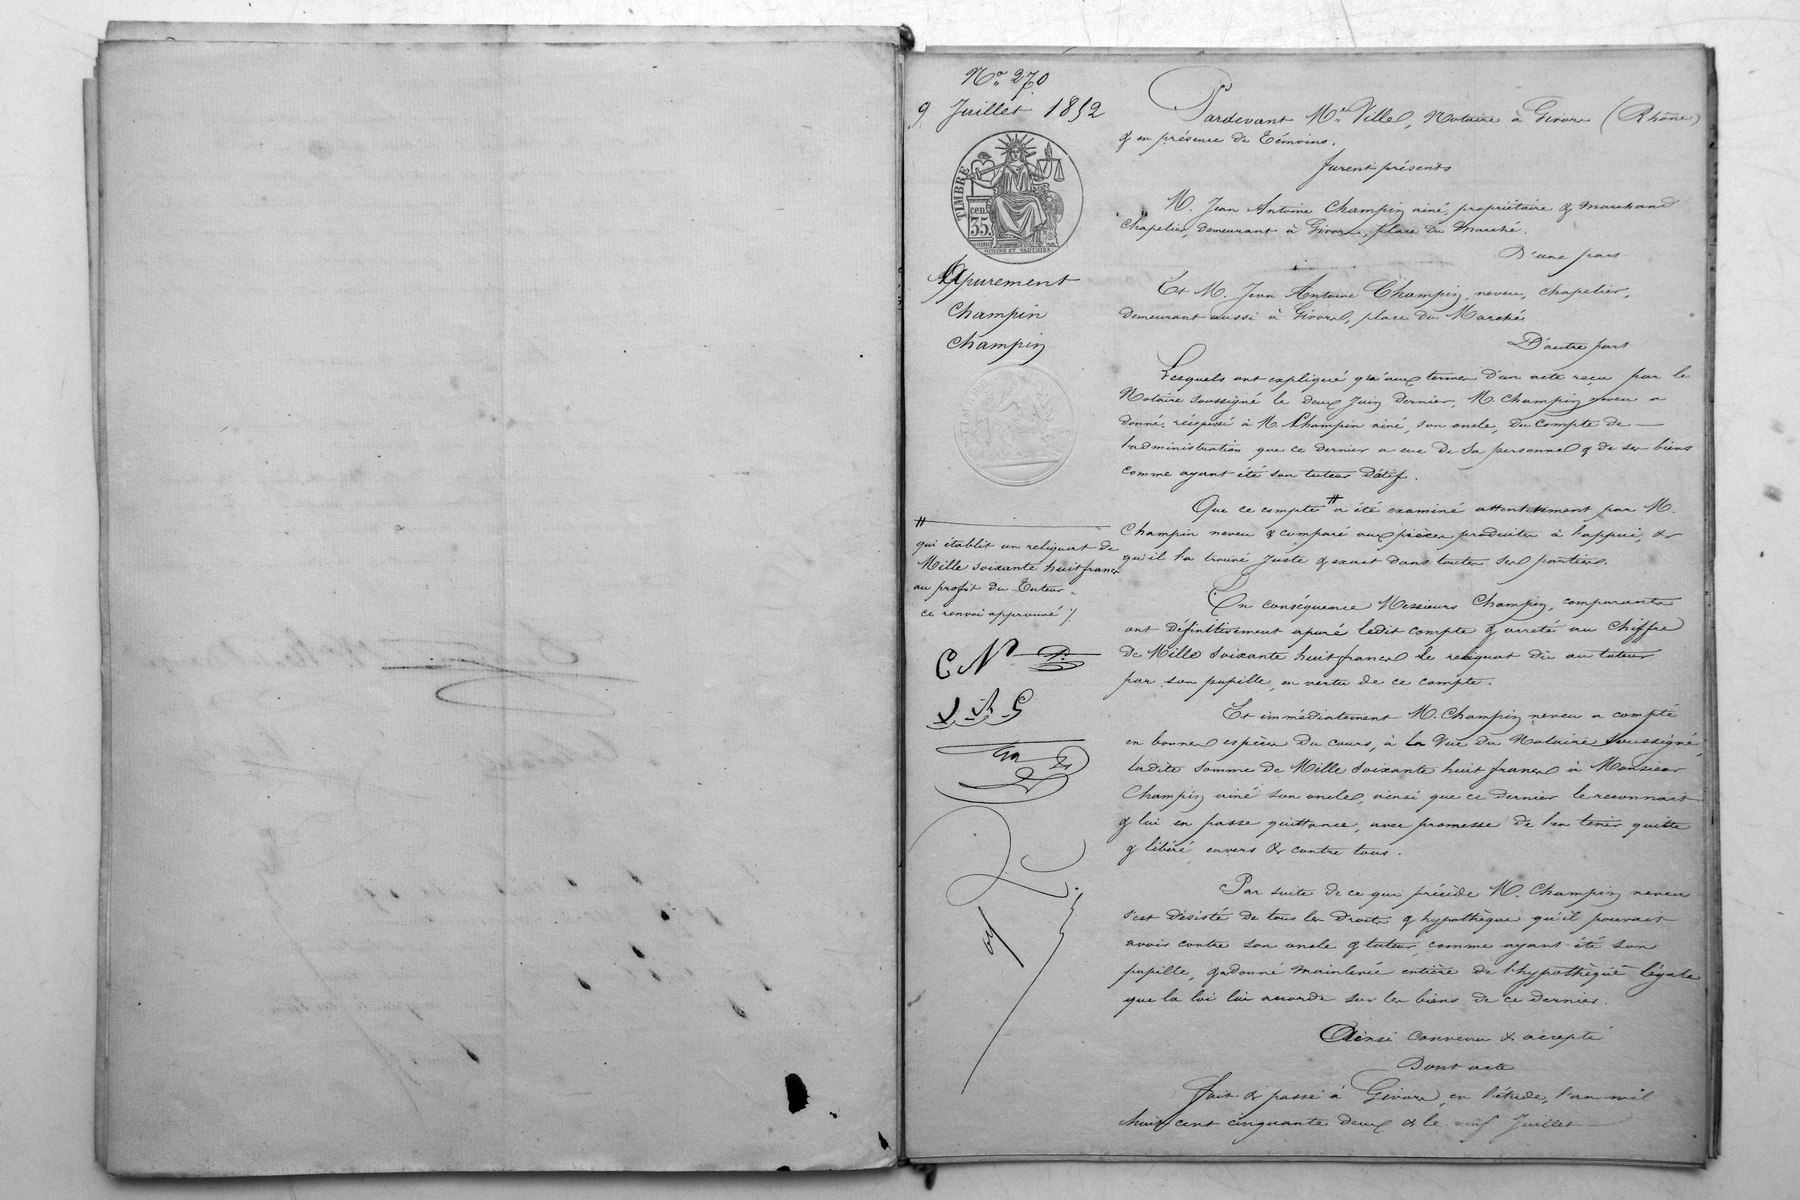 N.° 270
9 Juillet 1852
TIMBRE
cen.
35.
OUDINÉ ET VAUTHIER
Apurement
Champin
Champin
#
qui établit un reliquat de
Mille soixante huit francs
au profit du Tuteur
ce renvoi approuvé /.
Pardevant M.e Ville, Notaire à Givors (Rhône)
& en présence de témoins.
furent présents
M. Jean Antoine Champin ainé, propriétaire & marchand
Chapelier, demeurant à Givors, place du Marché.
D'une part
Et M. Jean Antoine Champin, neveu, chapelier,
demeurant aussi à Givors, place du Marché.
D'autre part
Lesquels ont expliqué qu'aux termes d'un acte reçu par le
Notaire soussigné le deux Juin dernier, M. Champin neveu a
donné récépissé à M. Champin ainé, son oncle, du compte de
l'administration que ce dernier a eue de sa personne & de ses biens
comme ayant été son tuteur datif.
Que ce compte # a été examiné attentivement par M.
Champin neveu & comparé aux pièces produites à l'appui, &
qu'il l'a trouvé juste & exact dans toutes ses parties.
En conséquence Messieurs Champin, comparants
ont définitivement apuré ledit compte & arrêté au chiffre
de Mille soixante huit francs le reliquat dû au tuteur
par son pupille, en vertu de ce compte.
Et immédiatement M. Champin neveu a compté
en bonnes espèces du cours, à la vue du Notaire soussigné,
ladite somme de Mille soixante huit francs à Monsieur
Champin ainé son oncle, ainsi que ce dernier le reconnait
& lui en passe quittance, avec promesse de l'en tenir quitte
& libéré envers & contre tous.
Par suite de ce qui précède M. Champin neveu
s'est désisté de tous les droits & hypothèque qu'il pourrait
avoir contre son oncle & tuteur, comme ayant été son
pupille, & a donné mainlevée entière de l'hypothèque légale
que la loi lui accorde sur les biens de ce dernier.
Ainsi convenu & accepté
Dont acte
fait & passé à Givors, en l'étude, l'an mil
huit cent cinquante deux & le neuf Juillet